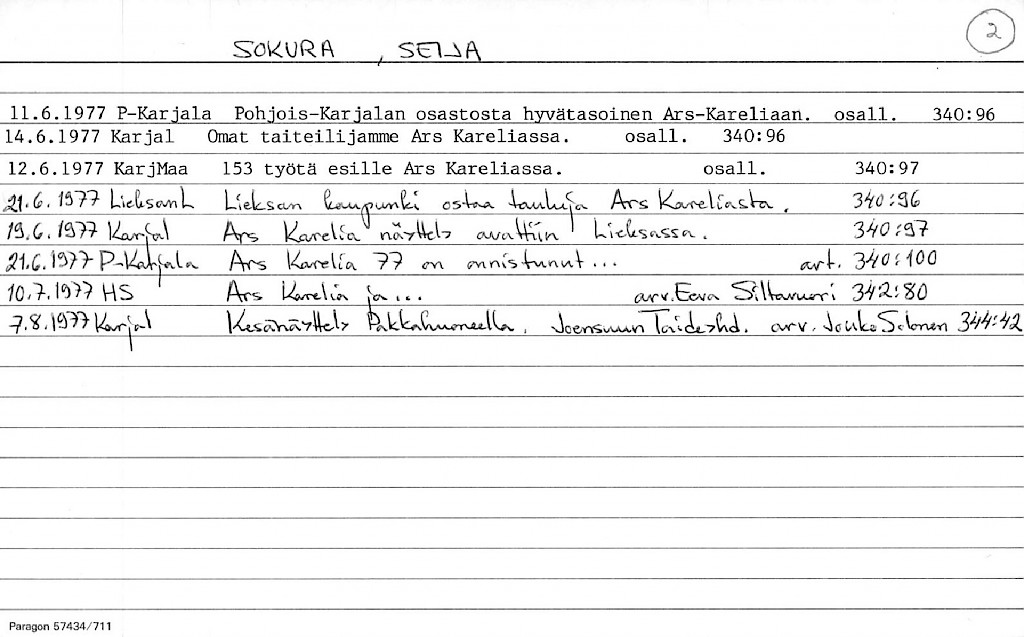 2
SOKURA , SEIJA
11.6.1977 P-Karjala Pohjois-Karjalan osastosta hyvätasoinen Ars-Kareliaan. osall. 340:96
14.6.1977 Karjal Omat taiteilijamme Ars Kareliassa. osall. 340:96
12.6.1977 KarjMaa 153 työtä esille Ars Kareliassa. osall. 340:97
21.6.1977 LieksanL Lieksan kaupunki ostaa tauluja Ars Kareliasta. 340:96
19.6.1977 Karjal Ars Karelia näyttely avattiin Lieksassa. 340:97
21.6.1977 P-Karjala Ars Karelia 77 on onnistunut... art. 340:100
10.7.1977 HS Ars Karelia ja... arv. Eeva Siltavuori 342:80
7.8.1977 Karjal Kesänäyttely Pakkahuoneella. Joensuun Taideyhd. arv. Jouko Solonen 344:42
Paragon 57434/711